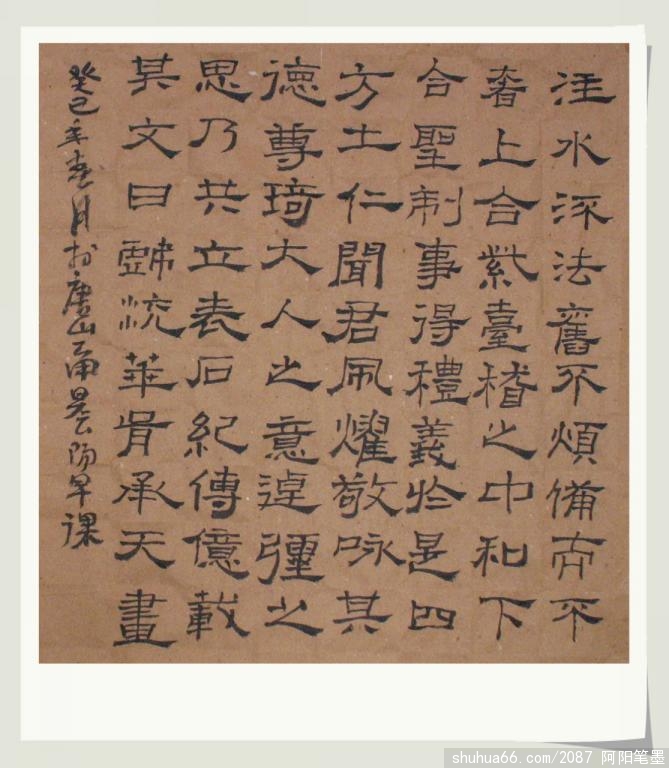 注水流法舊不煩備而不
奢上合紫臺稽之中和下
合聖制事得禮義於是四
方土仁聞君風燿敬咏其
德尊琦大人之意逴彌之
思乃共立表石紀傳億載
其文曰戲統華胥承天畫
癸巳年春月於唐山早課
shuhua66.com/2087 阿阳笔墨